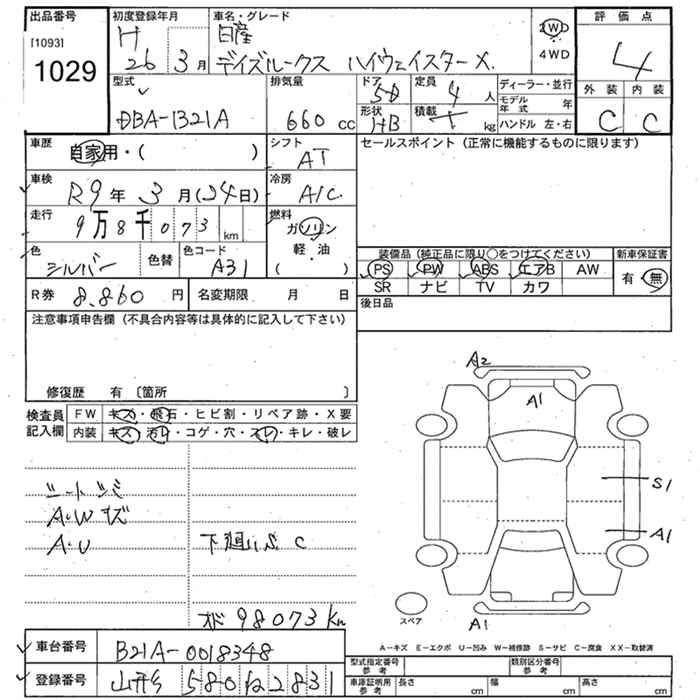 出品番号
[1093]
1029
初度登録年月
H 26 3月
車名・グレード
日産
デイズルークス ハイウェイスターX.
2WD
4WD
評価点
4
外装 内装
C C
型式
DBA-B21A
排気量
660 cc
ドア
5D
形状
HB
定員
4人
積載
kg
ディーラー・並行
モデル年式 年
ハンドル 左・右
車歴
自家用・( )
シフト
AT
セールスポイント (正常に機能するものに限ります)
車検
R9年 3月(24日)
冷房
A/C
走行
9万8千073 km
燃料
ガソリン
軽・油
( )
色
シルバー
色替
色コード
A31
装備品 (純正品に限り○をつけてください)
新車保証書
PS PW ABS エアB AW
有・無
SR ナビ TV カワ
R券 8.860円
名変期限 月 日
後日品
注意事項申告欄 (不具合内容等は具体的に記入して下さい)
修復歴 有 〔箇所 〕
検査員記入欄
FW キズ・飛石・ヒビ割・リペア跡・X要
内装 キズ・汚レ・コゲ・穴・スレ・キレ・破レ
シートシミ
A・Wキズ
A・U
下廻りS C
98073Km
A2
A1
S1
A1
A1
スペア
A-キズ E-エクボ U-凹み W-補修跡 S-サビ C-腐食 XX-取替済
車台番号
B21A-0018348
登録番号
山形 580 ね 2831
型式指定番号
参考
類別区分番号
参考
車庫証明用
参考
長さ cm
幅 cm
高さ cm